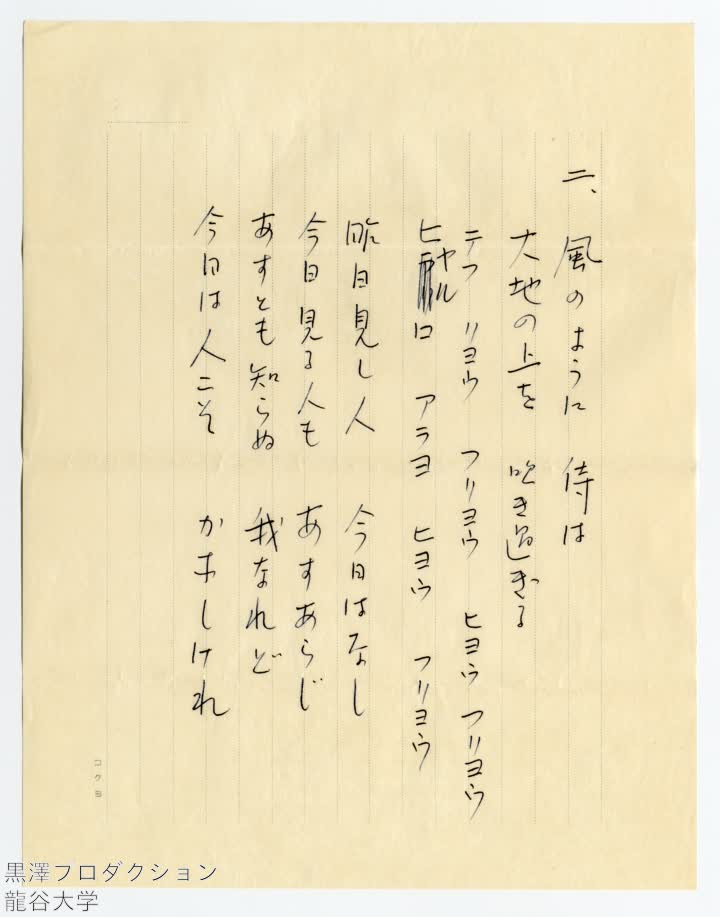 二、風のように 侍は
大地の上を 吹き過ぎる
テフ リヨウ フリヨウ ヒヨウ フリヨウ
ヒヤルロ アラヨ ヒヨウ フリヨウ
昨日見し人 今日はなし
今日見る人も あすあらじ
あすとも知らぬ 我なれど
今日は人こそ かなしけれ
コクヨ
黒澤プロダクション
龍谷大学